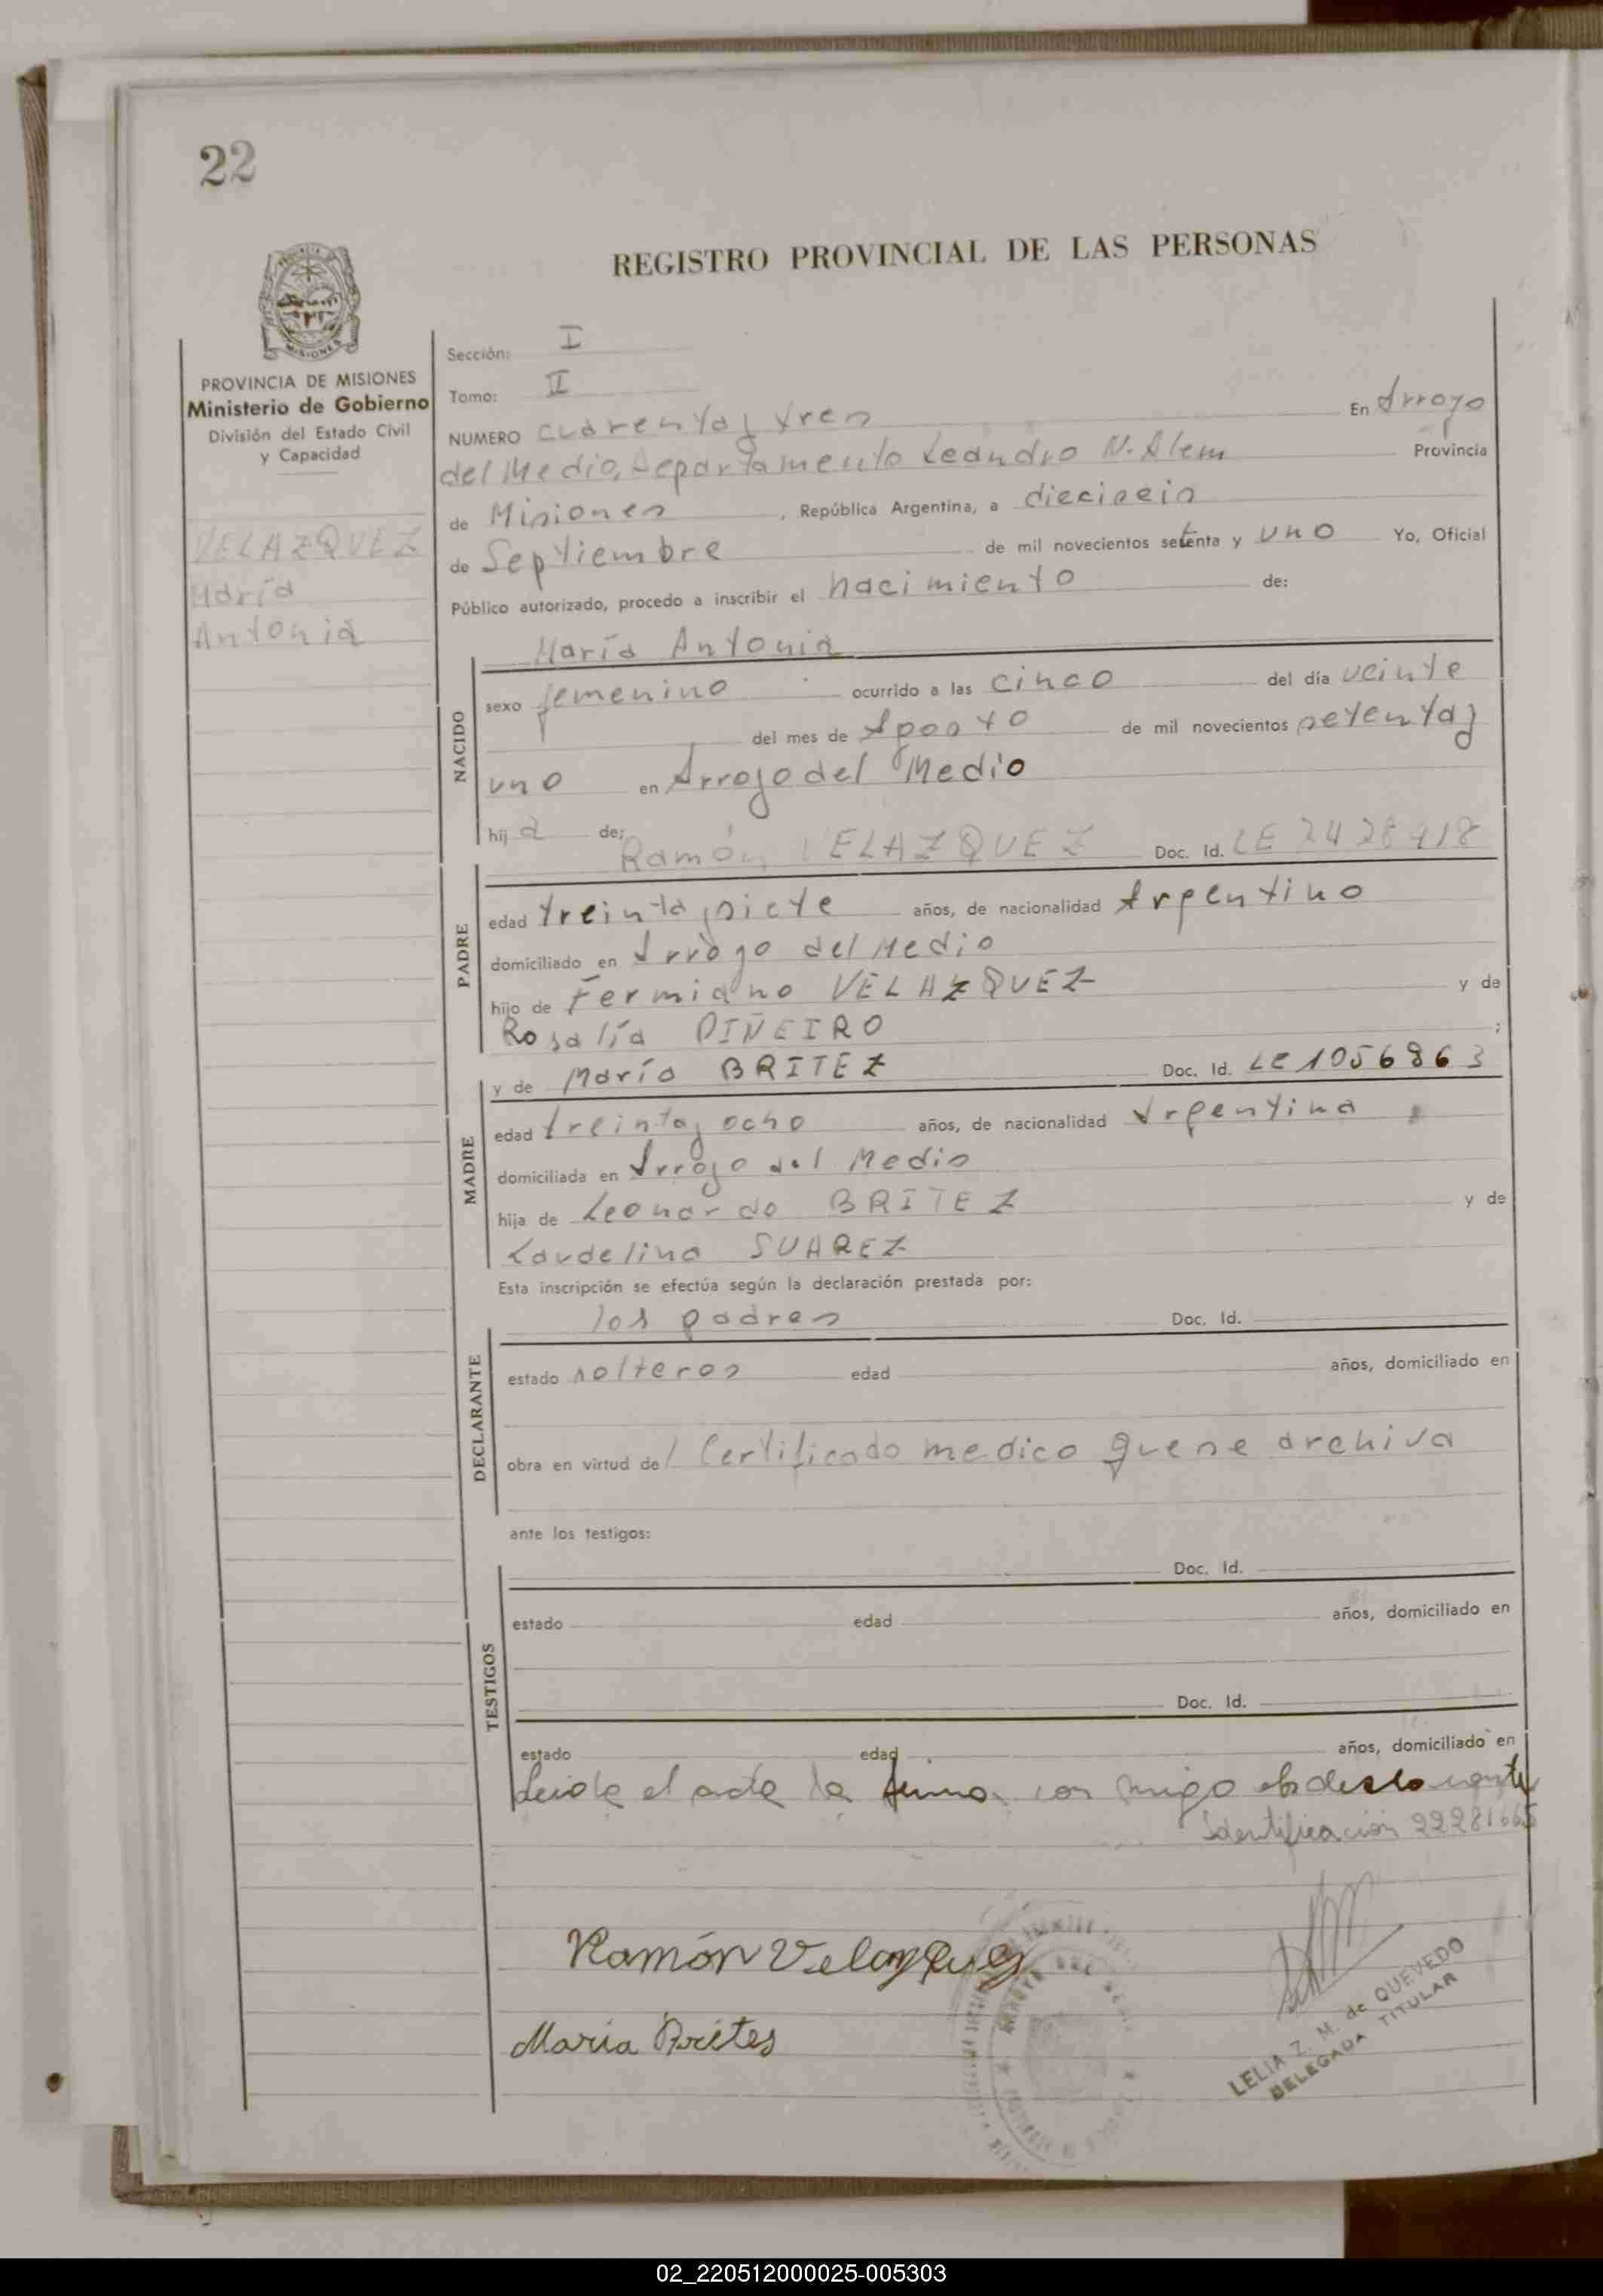 22
REGISTRO PROVINCIAL DE LAS PERSONAS
PROVINCIA DE MISIONES
Ministerio de Gobierno
División del Estado Civil
y Capacidad
VELAZQUEZ
María
Antonia
Sección: I
Tomo: II
NUMERO cuarenta y tres En Arroyo
del Medio, Departamento Leandro N. Alem Provincia
de Misiones, República Argentina, a dieciseis
de Septiembre de mil novecientos setenta y uno Yo, Oficial
Público autorizado, procedo a inscribir el nacimiento de:
María Antonia
NACIDO
sexo femenino ocurrido a las cinco del día veinte
del mes de Agosto de mil novecientos setenta y
uno en Arroyo del Medio
hij a de:
Ramón VELAZQUEZ Doc. Id. LE 2428418
PADRE
edad treinta y siete años, de nacionalidad Argentino
domiciliado en Arroyo del Medio
hijo de Fermiano VELAZQUEZ y de
Rosalía PIÑEIRO ;
y de María BRITEZ Doc. Id. LC 1056863
MADRE
edad treinta y ocho años, de nacionalidad Argentina
domiciliada en Arroyo del Medio
hija de Leonardo BRITEZ y de
Laudelina SUAREZ
Esta inscripción se efectúa según la declaración prestada por:
los padres Doc. Id.
DECLARANTE
estado solteros edad años, domiciliado en
obra en virtud del Certificado medico que se archiva
ante los testigos:
Doc. Id.
TESTIGOS
estado edad años, domiciliado en
Doc. Id.
estado edad años, domiciliado en
Leida el acta la firma con migo
Identificación 22281665
Ramón Velazquez
Maria Brites
LELIA Z. M. de QUEVEDO
DELEGADA TITULAR
02_220512000025-005303